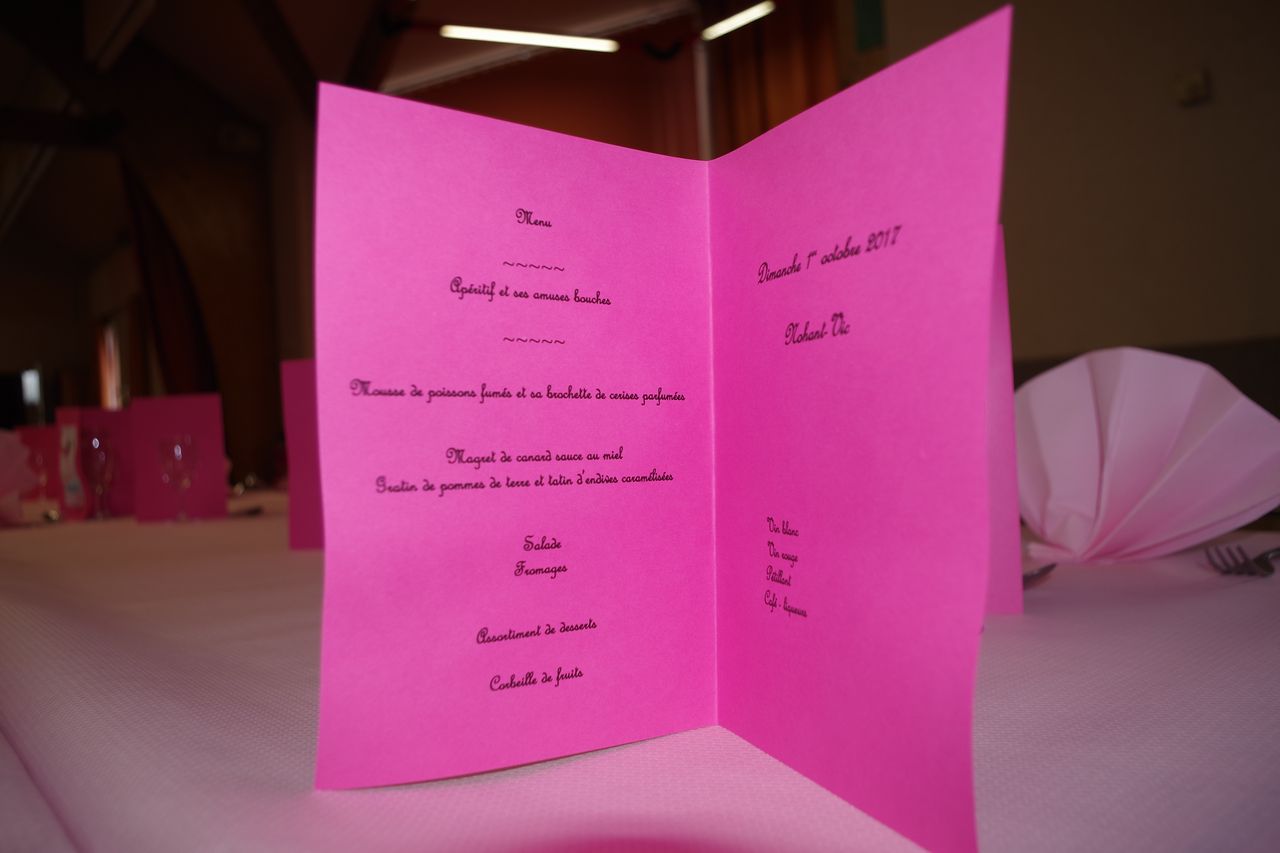 Menu
~~~~~
Apéritif et ses amuses bouches
~~~~~
Mousse de poissons fumés et sa brochette de cerises parfumées
Magret de canard sauce au miel
Gratin de pommes de terre et tatin d'endives caramélisées
Salade
Fromages
Assortiment de desserts
Corbeille de fruits
Dimanche 1er octobre 2017
Nohant-Vic
Vin blanc
Vin rouge
Pétillant
Café - liqueurs